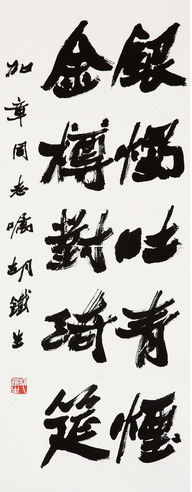 銀燭吐青煙
金樽對綺筵
加章同志囑胡鐵生